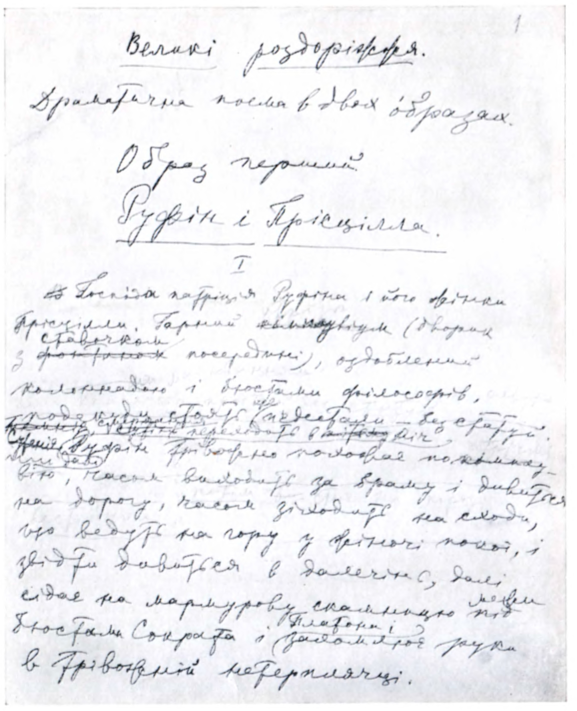 1
Великі роздоріжжя.
Драматична поема в двох образах.
Образ перший
Руфін і Прісцілла.
I
Господа патріція Руфіна і його жінки
Прісцілли. Гарний імплювіум (дворик
ставочком
з фонтаном посередині), оздоблений
колонадою і бюстами філософів,
подекуди стоять ще п'єдестали без статуй.
Руфін трівожно походжає по імплю-
вію, часом виходить за браму і дивиться
на дорогу, часом зіходить на сходи,
що ведуть на гору у жіночі покої, і
звідти дивиться в далечінь, далі
сідає на мармурову скамницю між
Платона і
бюстами Сократа і заломлює руки
в трівожній нетерплячці.